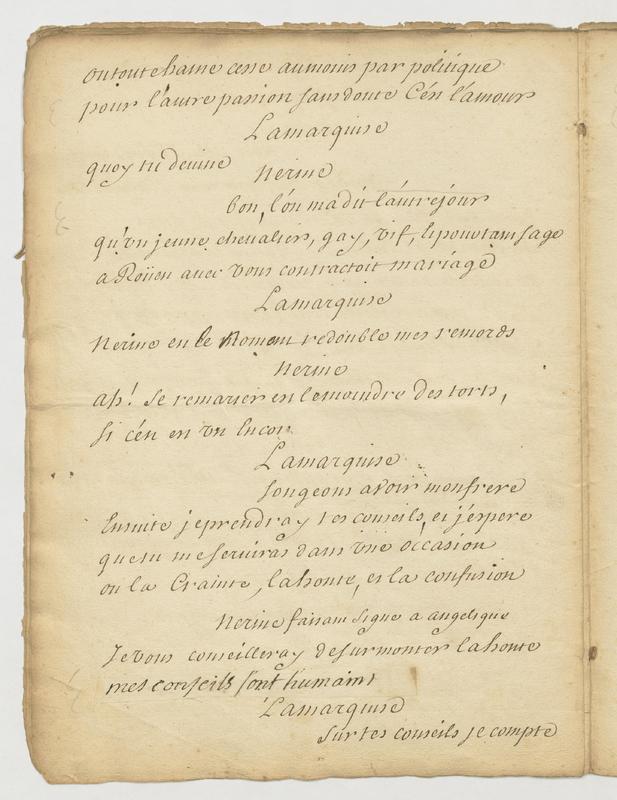 ou toute haine cesse au moins par politique
pour l'autre passion sans doute C'en l'amour
Lamarquise
quoy tu devine
Nerine
bon, l'on ma dit l'autre jour
qu'vn jeune chevalier, gay, vif, et pourtant sage
a Roüen avec vous contractoit mariage
Lamarquise
Nerine en ce moment redouble mes remords
Nerine
ah! se remarier en le moindre des torts,
si c'en en vn encor
Lamarquise
songeons a voir mon frere
Ensuite je prendray tes conseils, et j'espere
que tu me serviras dans vne occasion
ou la Crainte, la honte, et la confusion
Nerine faisant signe a angelique
Je vous conseilleray de surmonter la honte
mes conseils sont humains
Lamarquise
sur tes conseils je compte